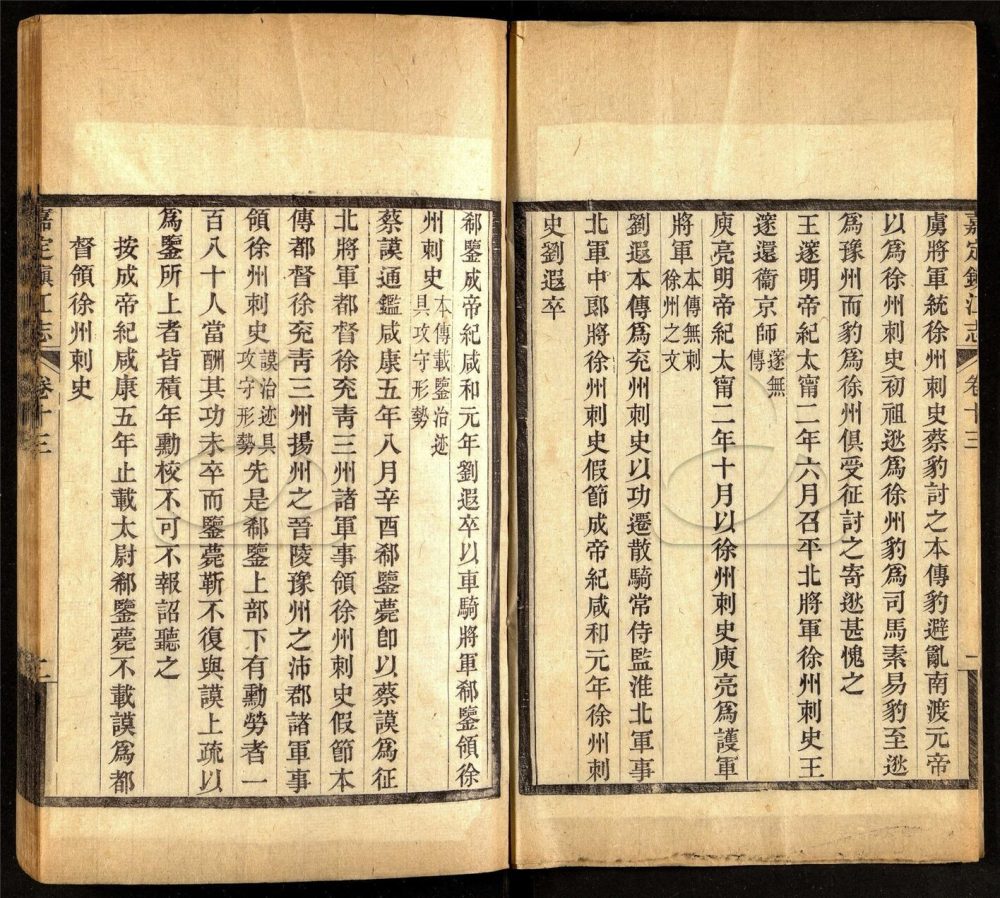 嘉定鎮江志 卷十三 一
虜將軍統徐州刺史蔡豹討之本傳豹避亂南渡元帝
以爲徐州刺史初祖逖爲徐州豹爲司馬素易豹至逖
爲豫州而豹爲徐州俱受征討之寄逖甚愧之
王邃明帝紀太甯二年六月召平北將軍徐州刺史王
邃還衞京師邃無傳
庾亮明帝紀太甯二年十月以徐州刺史庾亮爲護軍
將軍本傳無刺徐州之文
劉遐本傳爲兖州刺史以功遷散騎常侍監淮北軍事
北軍中郎將徐州刺史假節成帝紀咸和元年徐州刺
史劉遐卒
郗鑒成帝紀咸和元年劉遐卒以車騎將軍郗鑒領徐
州刺史本傳載鑒治迹具攻守形勢
蔡謨通鑑咸康五年八月辛酉郗鑒薨卽以蔡謨爲征
北將軍都督徐兖靑三州諸軍事領徐州刺史假節本
傳都督徐兖靑三州揚州之晉陵豫州之沛郡諸軍事
領徐州刺史謨治迹具攻守形勢先是郗鑒上部下有勳勞者一
百八十人當酬其功未卒而鑒薨斬不復與謨上疏以
爲鑒所上者皆積年勳校不可不報詔聽之
按成帝紀咸康五年止載太尉郗鑒薨不載謨爲都
督領徐州刺史
嘉定鎮江志 卷十三 二